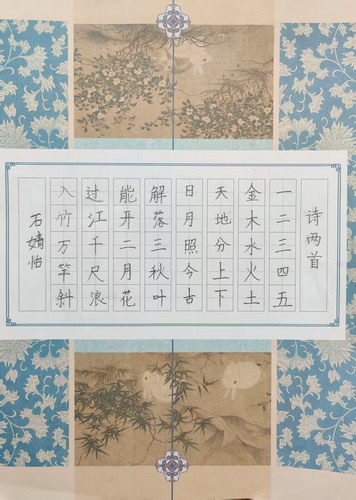 诗两首
一二三四五
金木水火土
天地分上下
日月照今古
解落三秋叶
能开二月花
过江千尺浪
入竹万竿斜
石嫡怡